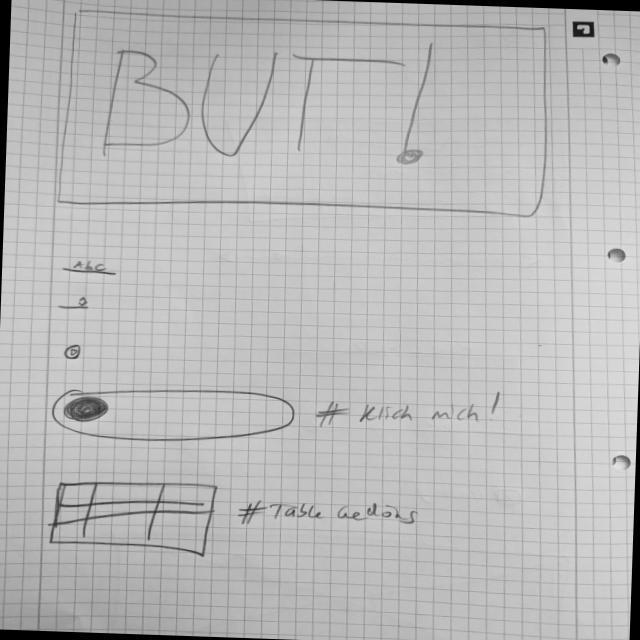 BUT!
ABC
# Klick mich!
# Table Gedöns